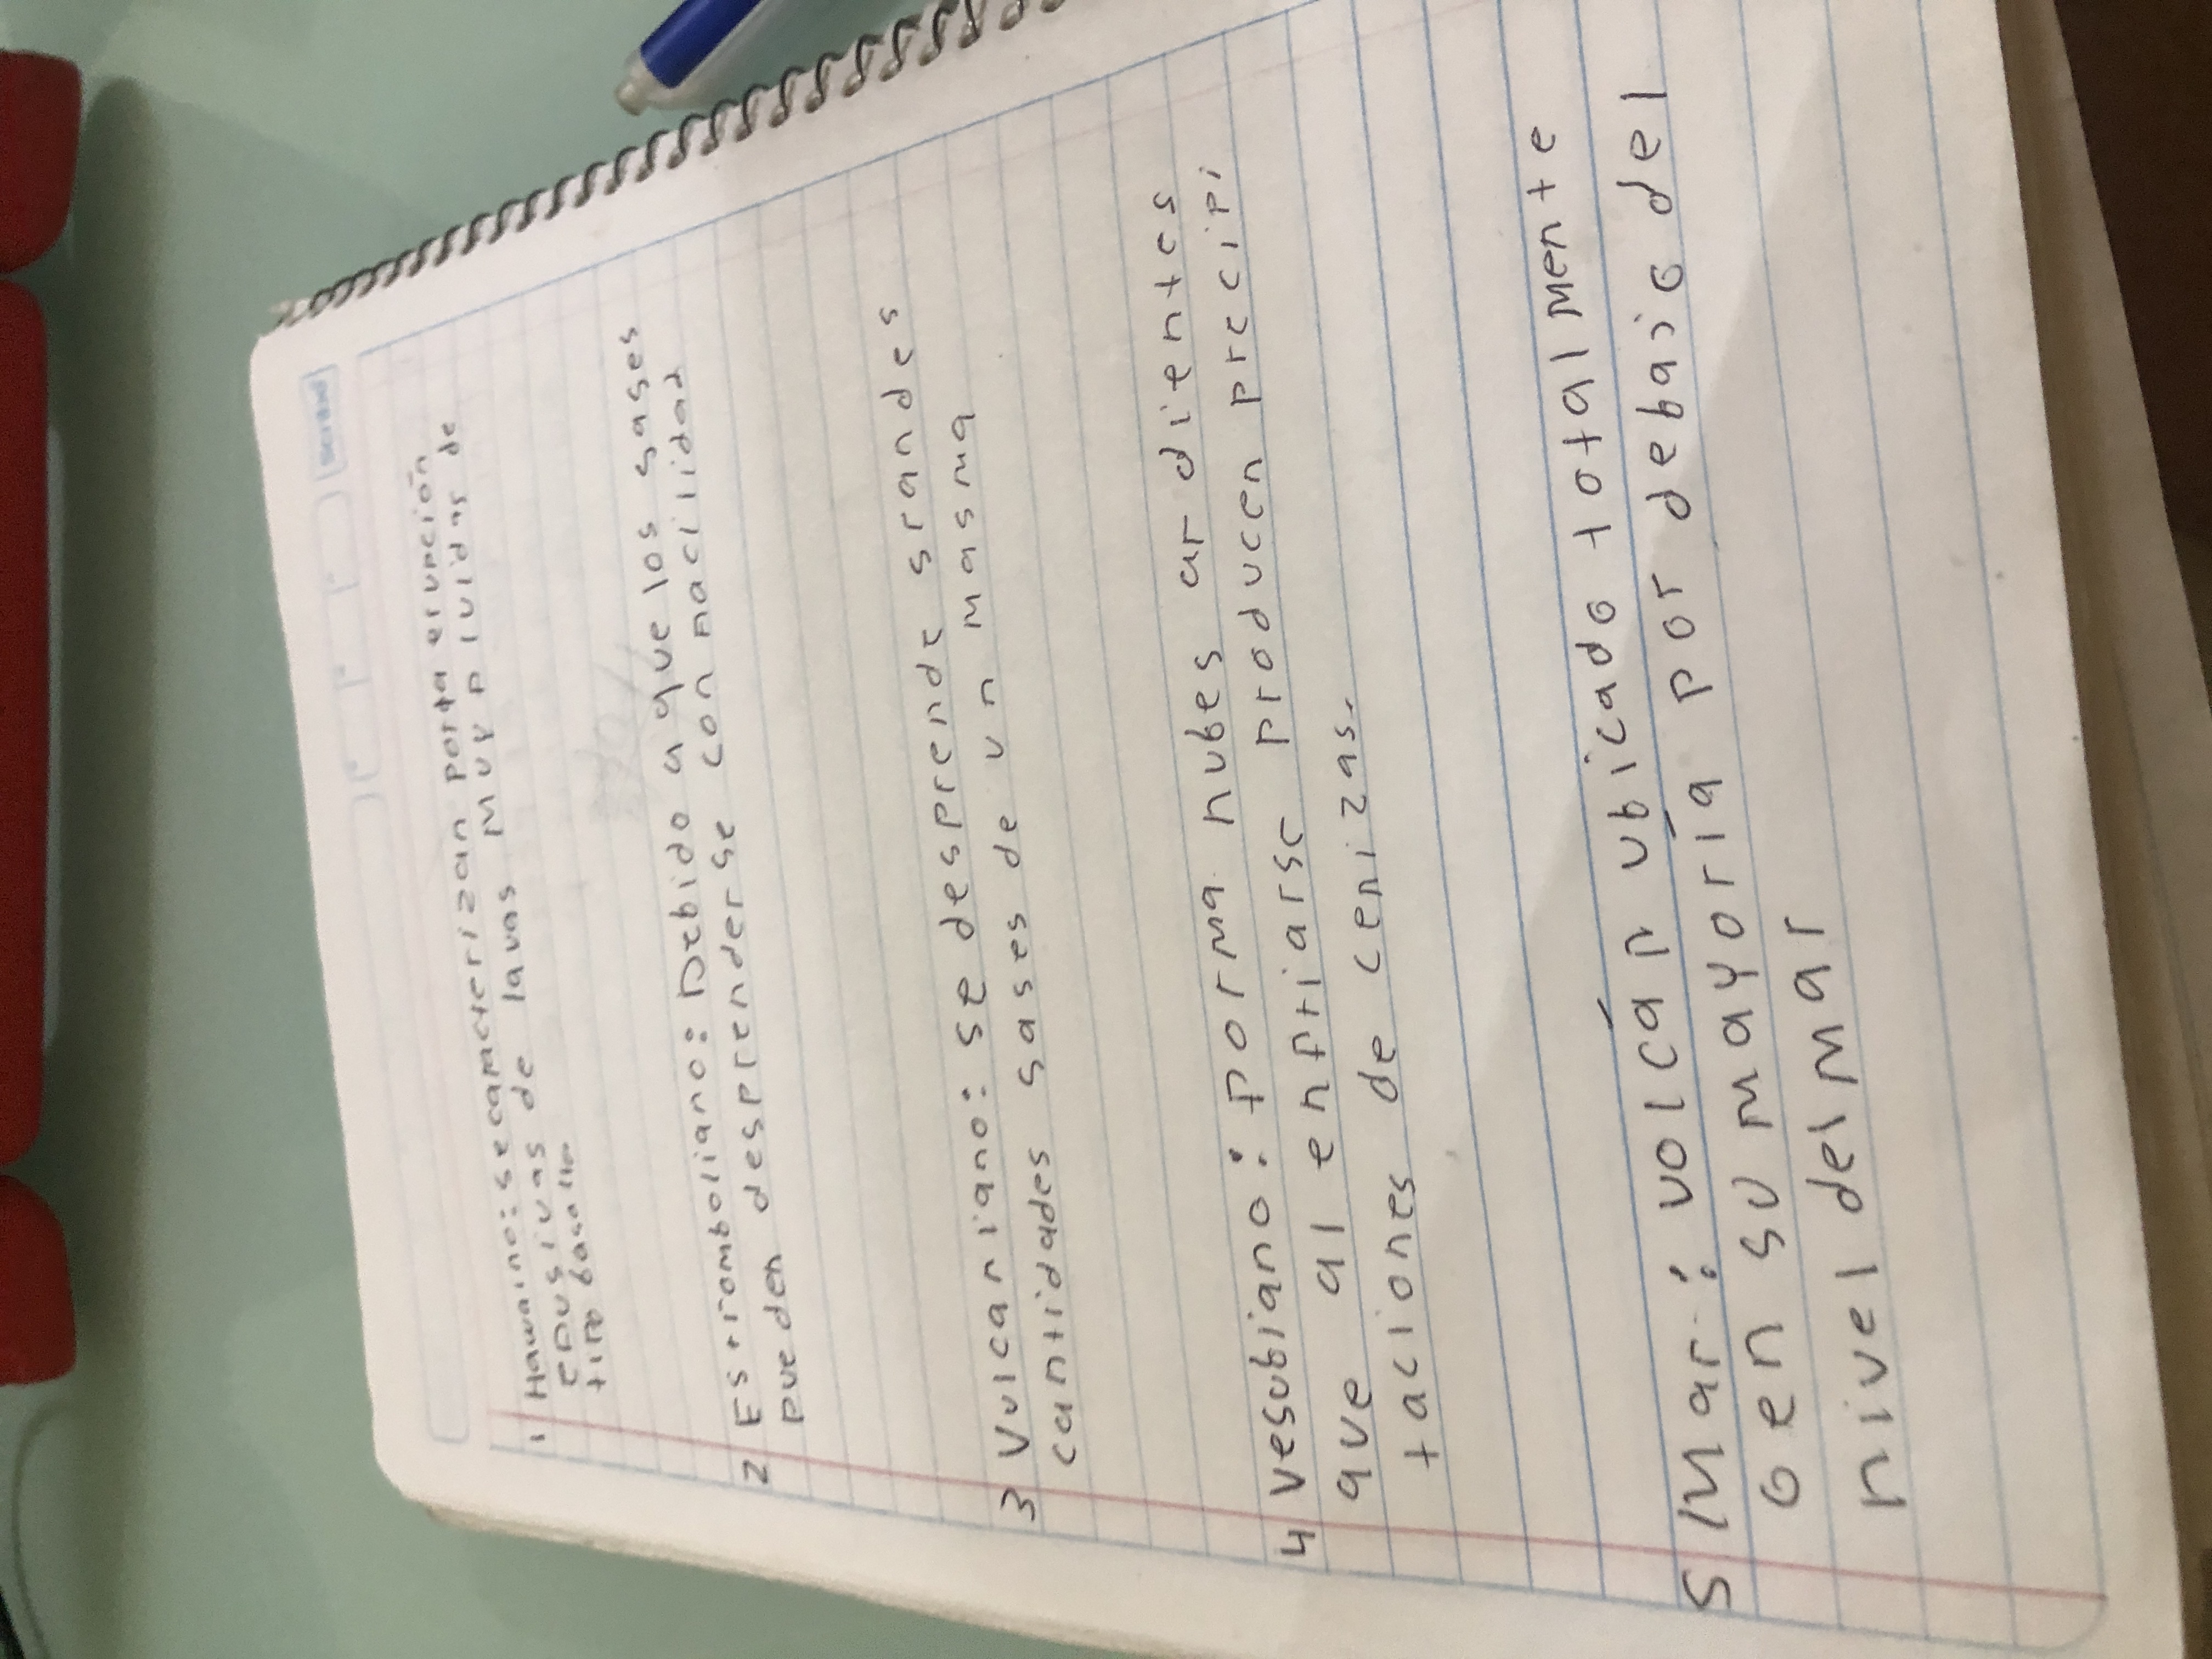 1 Hawaino: se caracterizan porta erupción
efusivas de lavas muy fluidas de
tipo
2 Estromboliano: Debido a que los gases
pueden desprenderse con facilidad
3 Vulcaniano: se desprende grandes
cantidades gases de un magma
4 Vesubiano: forma nubes ardientes
que al enfriarse producen precipi
taciones de cenizas.
5 Mar: volcán ubicado totalmente
o en su mayoría por debajo del
nivel del mar